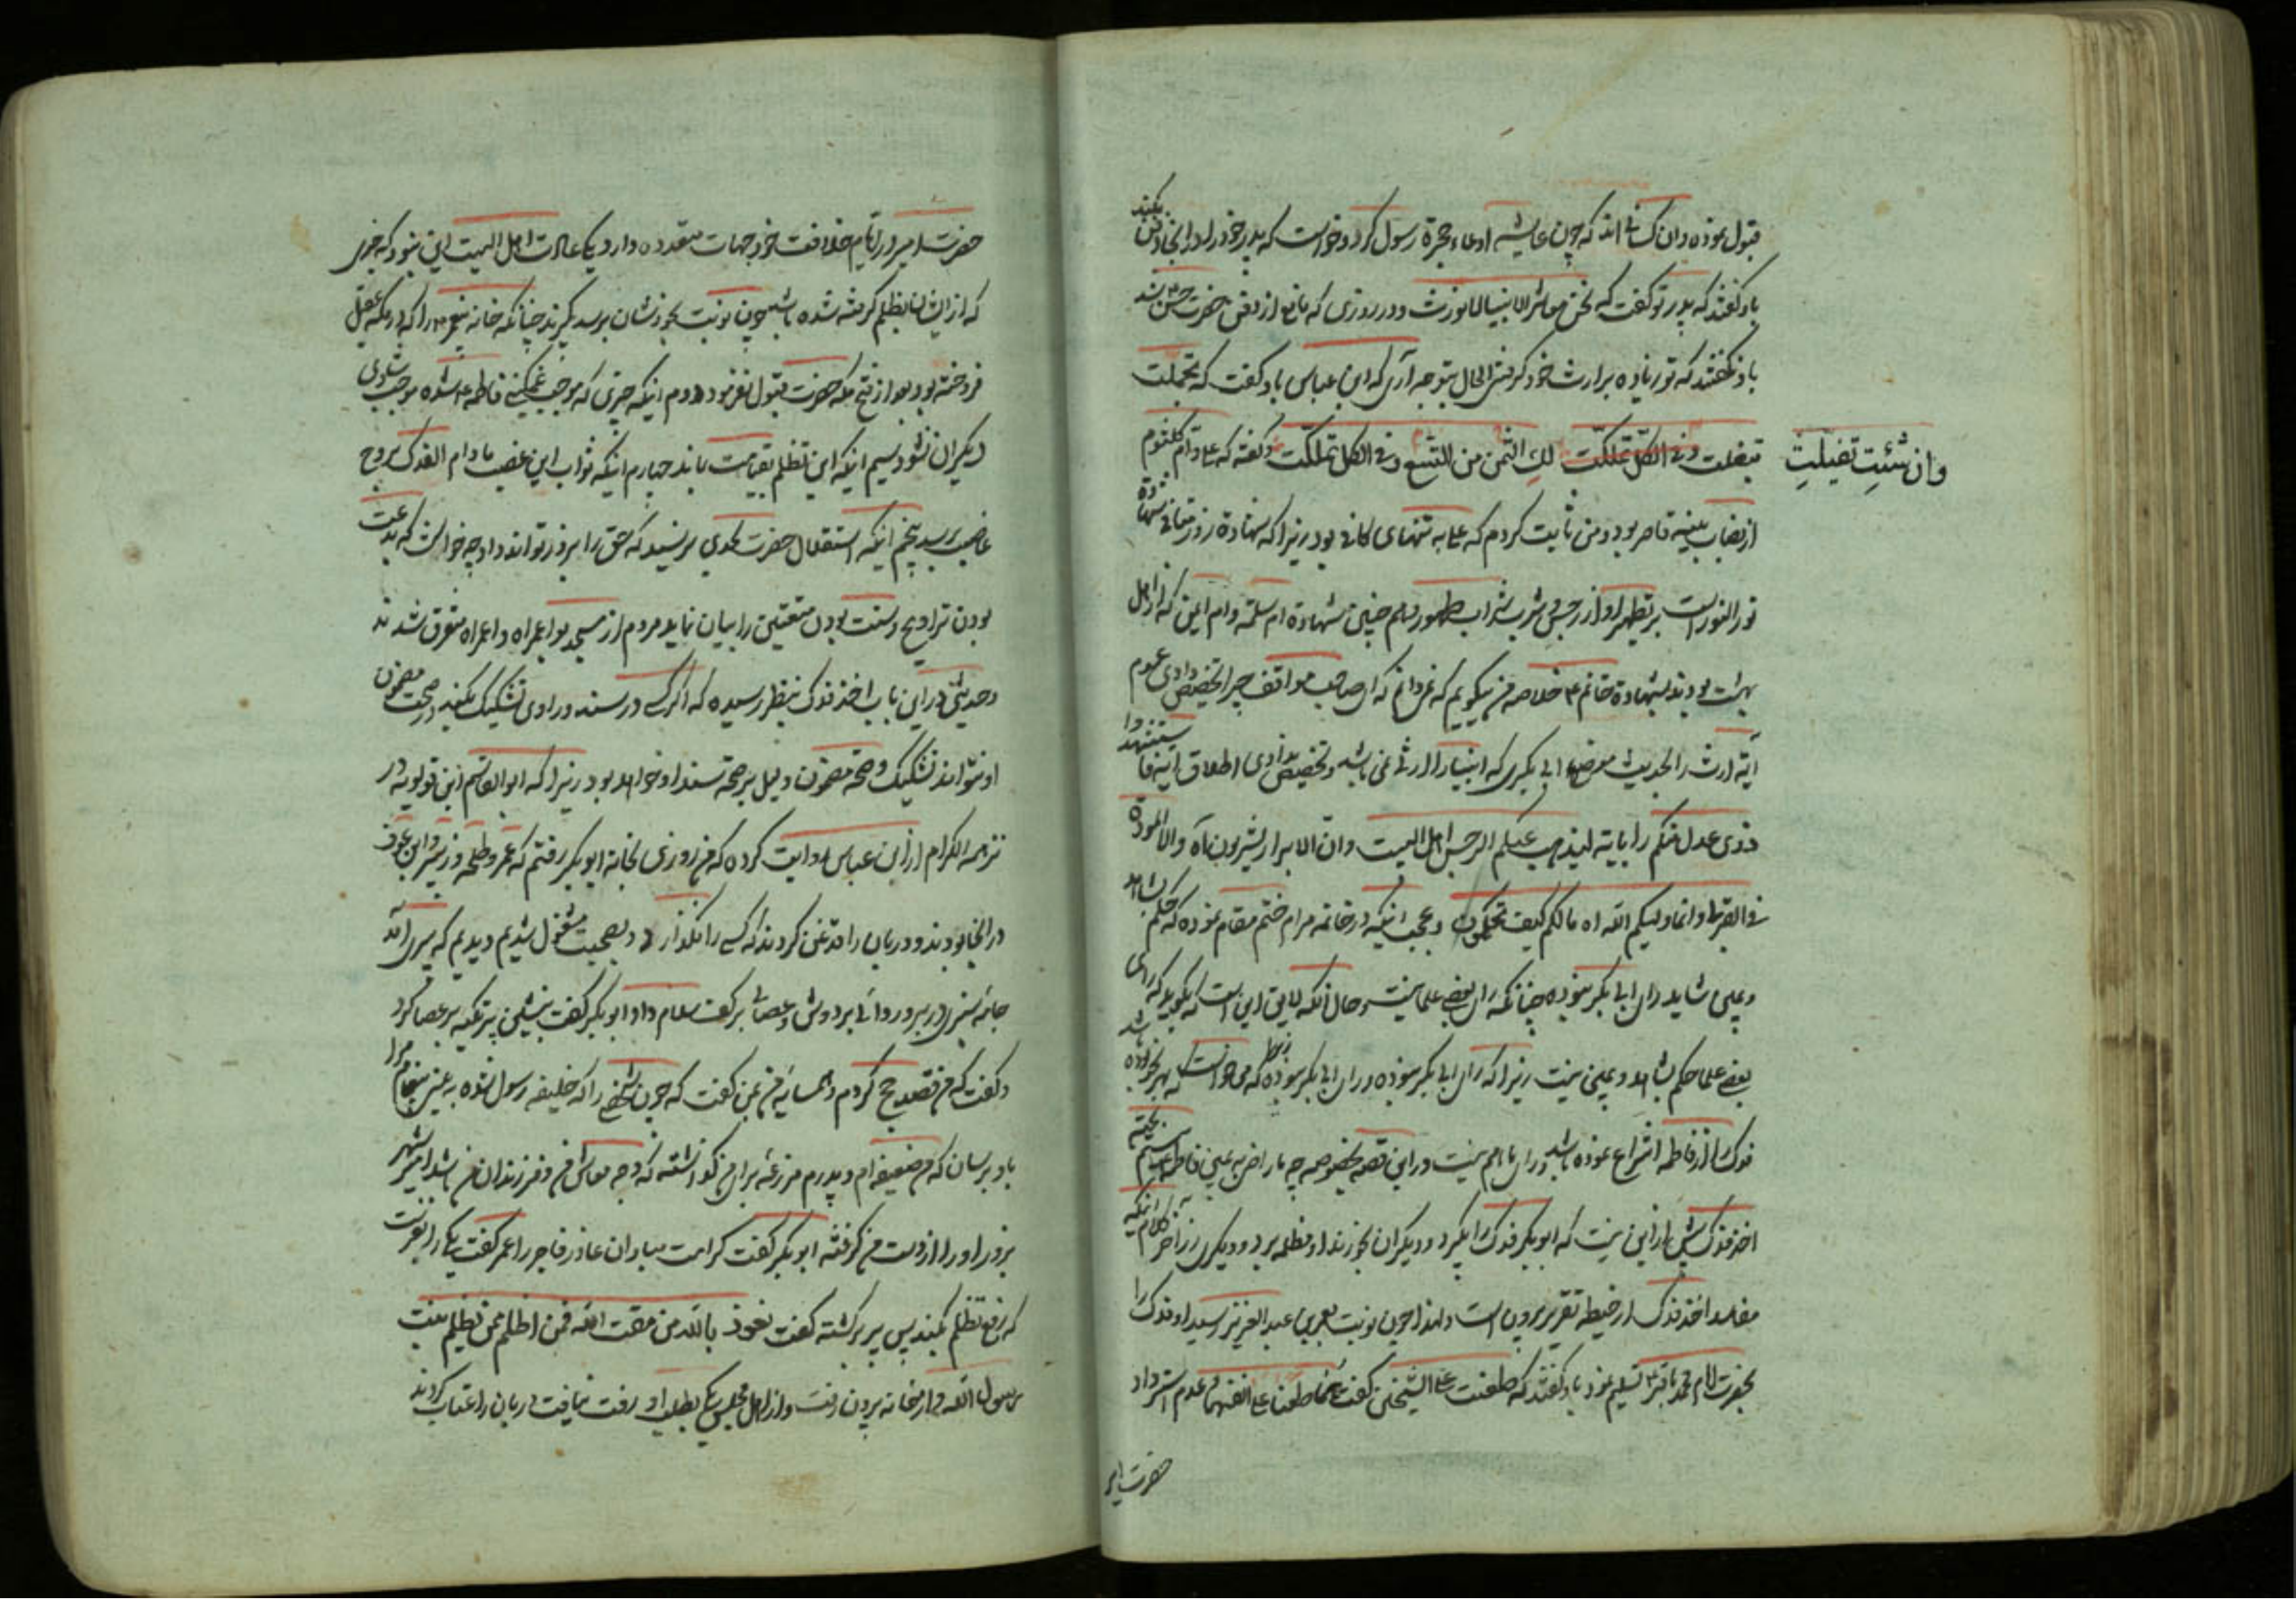 قبول نموده وان کسانی اند که چون عایشه ادعاء حجرهٔ رسول کرد و خواست که پدر خود را در انجا دفن بکند
باو گفتند که پدر تو گفت که نحن معاشر الانبیا لا نورث ودر روزی که مانع از دفن حضرت حسن شد
باو نگفتند که تو زیاده بر ارث خود گرفتی الحال بتوجه آری که ابن عباس باو گفت که تجملت
تبغلت وفی الکل تملکت لک الثمن من التسع وفی الکل تملکت وگفته که علی و ام کلثوم
وان شئت تفیلت
از نصاب بینه قاصر بود ومن ثابت کردم که علی به تنهای کافی بود زیرا که شهادة
نور النور است بر تطهر او از رجس و شرب شراب طهور وهم چنین شهادة ام سلمه وام ایمن که از اهل
بهشت بودند بشهادة خاتم خلاصه من میگویم که نمیدانم که ای صاحب مواقف چرا تخصیص دادی عموم
آیه ارث را بحدیث ابی بکری که انبیا را ارثی نمی باشد وتخصیص ندادی اطلاق آیه فاستشهدوا
ذوی عدل منکم را بآیه لیذهب عنکم الرجس اهل البیت وان الابرار یشربون آه والا المودة
فی القربی وانما ولیکم الله اه ما لکم کیف تحکمون وعجب اینکه در خاتمه مرام ختم مقام نموده که حکم بشاهد
ویمین شاید رای ابی بکر نبوده چنانکه رای بعضی علما نیست وحال آنکه لایق این است که بگوید که رای
بعضی علما حکم بشاهد ویمین نیست زیرا که رای ابی بکر نبوده ورای ابی بکر نبوده که میخواست که
فدک را از فاطمه انتزاع نموده باشد ودر این قصه بخصوصه چه با راضی به یمین فاطمه
اخذ فدک بیش از این نیست که ابوبکر فدک را بگیرد ودیگران بخورند او مظلمه برد ودیگری زر آخر کلام اینکه
مفاسد اخذ فدک از حیطه تقریر بیرون است ولهذا چون نوبت بعمر بن عبد العزیز رسید او فدک را
بحضرت امام محمد باقر تسلیم نمود باو گفتند که طعنت علی الشیخین گفت هما طعنا علی انفسهما وعدم استرداد
حضرت امیر
حضرت امیر در ایام خلافت خود جهات متعدده دارد یکی عادت اهل البیت این نبود که چیزی
که از ایشان بظلم گرفته شده باشد چون نوبت بخودشان برسد بگیرند چنانکه خانه پیغمبر را که در مکه عقیل
فروخته بود بعد از فتح مکه حضرت قبول نفرمود دوم اینکه چیزی که موجب غمگینی فاطمه شده موجب شادی
دیگران نشود سیم اینکه این تظلم بقیامت باند چهارم اینکه ثواب این غصب مادام الفدک بروح
غاصب برسد پنجم اینکه استقلال حضرت بحدی نرسید که حق را بروز تواند داد چه خواست که بدعت
بودن تراویح وسنت بودن متعتین را بیان نماید مردم از مسجد بوا عمراه وا عمراه متفرق شدند
وحدیثی در این باب اخذ فدک بنظر رسیده که اگر کسی در سند وراوی تشکیک بکند در صحت مضمون
او نتواند تشکیک وصحة مضمون دلیل بر صحة سند او خواهد بود زیرا که ابو القاسم ابن قولویه در
نزهه الکرام از ابن عباس روایت کرده که من روزی بخانه ابو بکر رفتم که عمر وطلحه وزبیر وابن عوف
در انجا بودند ودربان را قدغن کردند که کسی را نگذارد وبصحبت مشغول شدیم ودیدیم که پیری آمد
جامه سبزی در بر وردائی بر دوش وعصائی بر کف سلام داد ابو بکر گفت بنشین پیر تکیه بر عصا کرد
وگفت که من قصد حج کردم وهمسایه من بمن گفت که چون شخصی را که خلیفه رسول شده به بینی پیغام مرا
باو برسان که من ضعیفه ام وپدرم مزرعه برای من گذاشته که وجه معاش من وفرزندان من باشد امیر شهر
بزور او را از دست من گرفته ابو بکر گفت کرامت مبادا ان غادر فاجر را عمر گفت یکی را بفرست
که رفع تظلم بکند پس پیر برگشته گفت نعوذ بالله من مقت الله فمن اظلم ممن یظلم بنت
رسول الله واز خانه بیرون رفت واز اهل مجلس یکی بطلب او رفت نیافت دربان را عتاب کردند